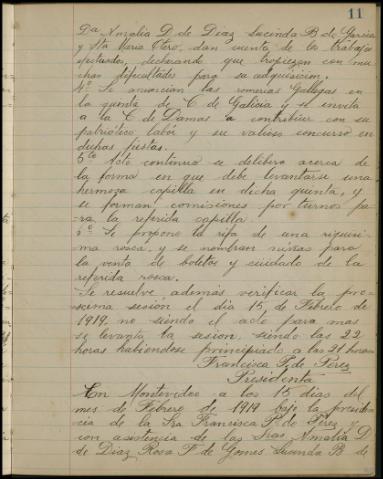 11
Dª Amalia D de Diaz Lucinda B de Garcia
y Sta Maria Otero, dan cuenta de los trabajos
efectuados, declarando que tropiezan con mu-
chas dificultades para su adquisicion.
4º Se anuncian las romerias Gallegas en
la quinta de C de Galicia y se invita
a la C de Damas a contribuir con su
patriótica labor y su valioso concurso en
dichas fiestas.
5to Acto continuo se delibero acerca de
la forma en que debe levantarse una
hermoza capilla en dicha quinta, y
se forman comisiones por turnos pa-
ra la referida capilla
6º Se propone la rifa de una riquisi-
ma rosca, y se nombran niñas para
la venta de boletos y cuidado de la
referida rosca.
Se resuelve ademas verificar la pro-
xima sesión el dia 15 de Febrero de
1919, no siendo el acto para mas
se levanta la sesion, siendo las 22
horas habiendose principiado a las 21 horas
Francisca P. de Perez
Presidenta
En Montevideo a los 15 dias del
mes de Febrero de 1919 bajo la presiden-
cia de la Sra Francisca P. de Perez y
con asistencia de las Sras Amalia D
de Diaz Rosa F de Gomes Lucinda B de